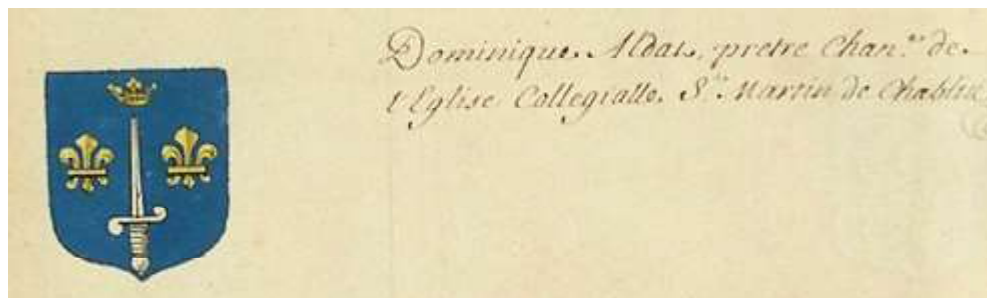 Dominique Aldat, pretre Chan.ne de
l'Eglise Collegialle S.t Martin de Chablis